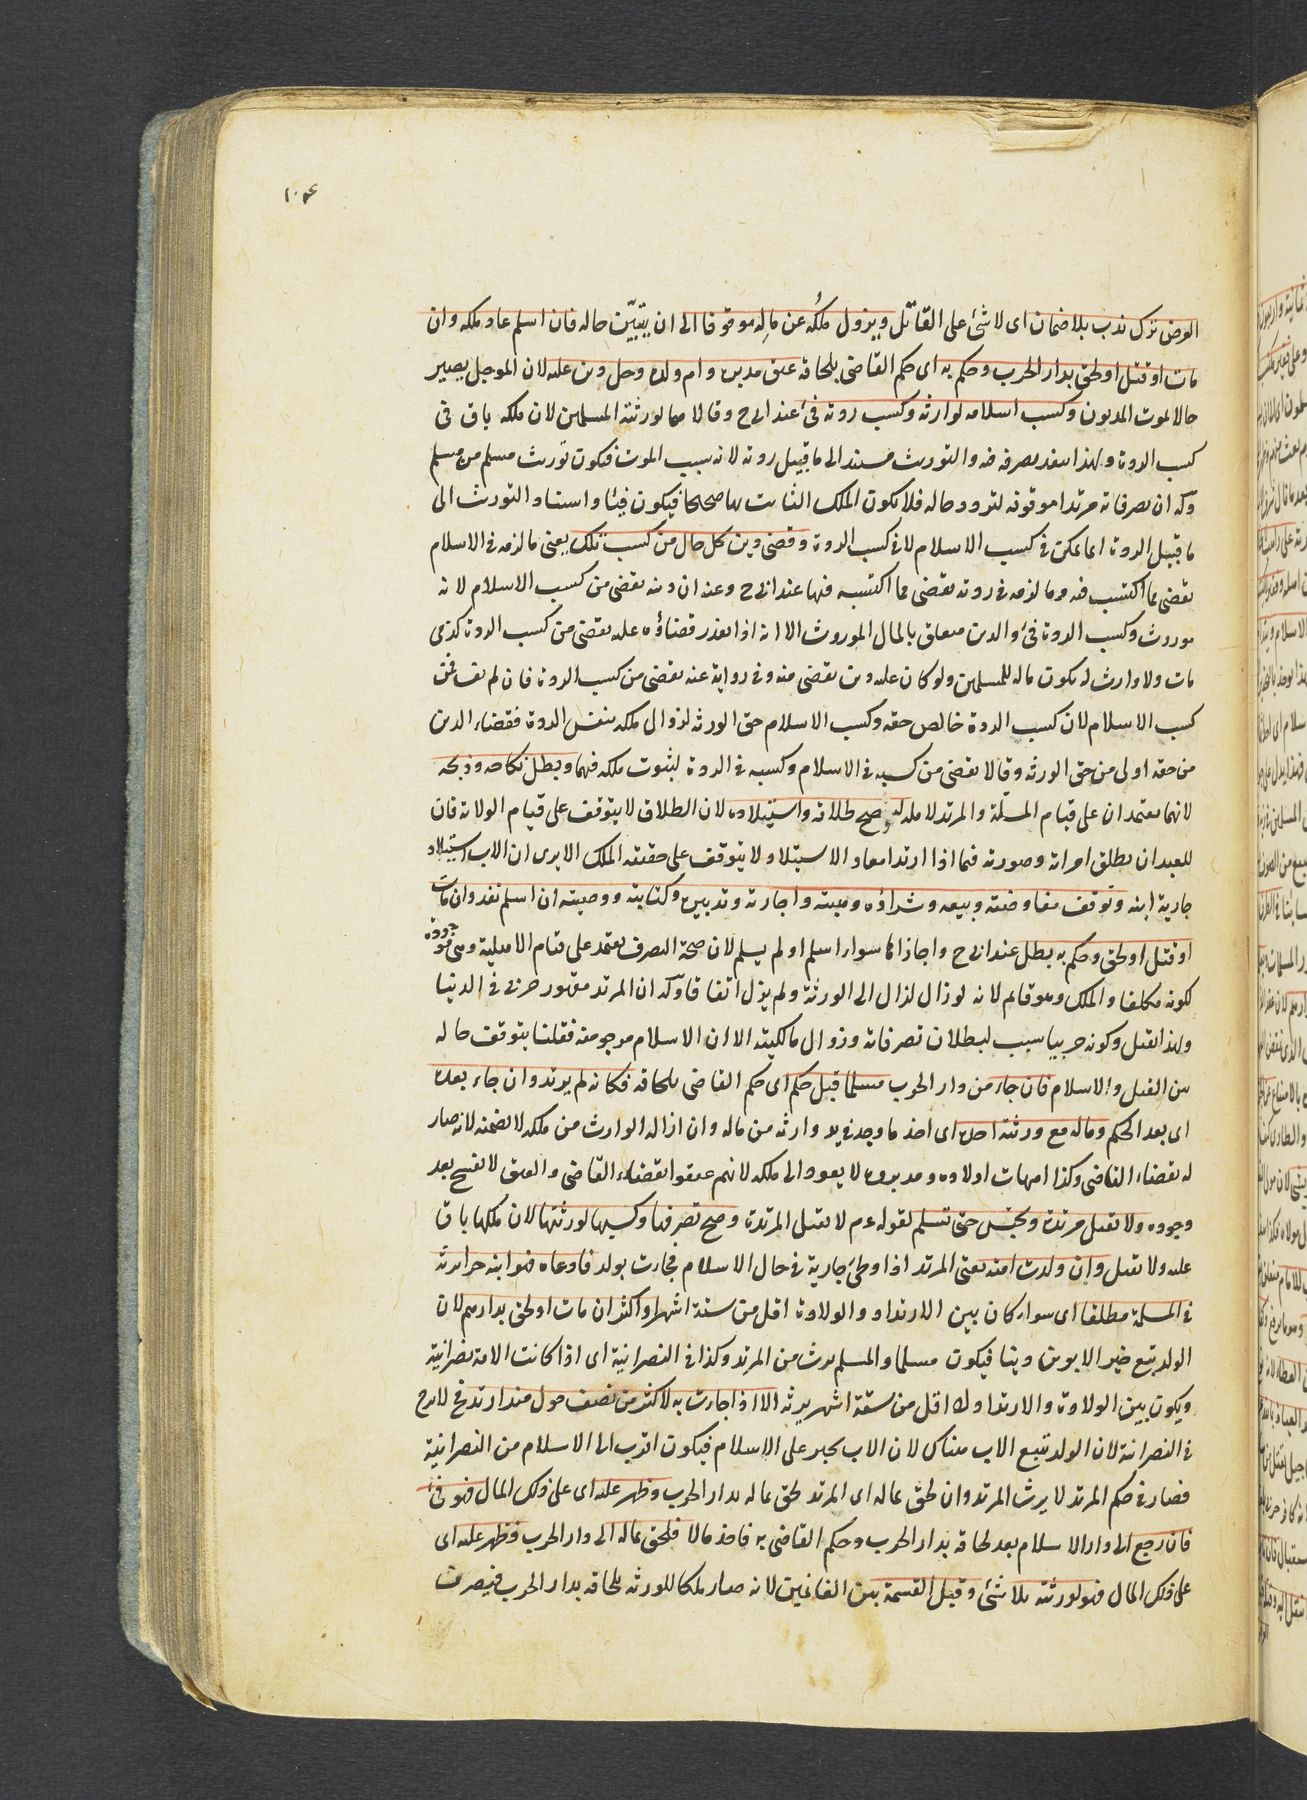 ١٠٤
العرض ترك ندب بلا ضمان اى لا شئ على القاتل ويزول ملكه عن ماله موقوفا الى ان يتبيّن حاله فان اسلم عاد ملكه وان
مات او قتل او لحق بدار الحرب وحكم به اى حكم القاضى بلحاقه عتق مدبره وام ولده وحل دين عليه لان المؤجل يصير
حالا بموت المديون وكسب اسلامه لوارثه وكسب ردته فئ عند ابى ح وقالا هما لورثته المسلمين لان ملكه باق فى
كسب الردة ولهذا ينفذ تصرفه فيه والتوريث مستند الى ما قبيل ردته لانه سبب الموت فيكون توريث مسلم من مسلم
وله ان تصرفاته مرتدا موقوفة لتردد حاله فلا يكون الملك الثابت بها صحيحا فيكون فيئا واستناد التوريث الى
ما قبيل الردة انما يمكن فى كسب الاسلام لا فى كسب الردة وقضى دين كل حال من كسب تلك يعنى ما لزمه فى الاسلام
يقضى مما اكتسب فيه وما لزمه فى ردته يقضى مما اكتسبه فيها عند ابى ح وعنه ان دينه يقضى من كسب الاسلام لانه
موروث وكسب الردة فئ والدين متعلق بالمال الموروث الا انه اذا تعذر قضاؤه عليه يقضى من كسب الردة كذمى
مات ولا وارث له يكون ماله للمسلمين ولو كان عليه دين يقضى منه وفى رواية عنه يقضى من كسب الردة فان لم يف فمن
كسب الاسلام لان كسب الردة خالص حقه وكسب الاسلام حق الورثه لزوال ملكه بنفس الردة فقضاء الدين
من حقه اولى من حق الورثه وقالا يقضى من كسبه فى الاسلام وكسبه فى الردة لثبوت ملكه فيهما وبطل نكاحه وذبحه
لانهما يعتمدان على قيام الملة والمرتد لا ملة له وصح طلاقه واستيلاده لان الطلاق لا يتوقف على قيام الولاية فان
للعبد ان يطلق امراته وصورته فيما اذا ارتدا معا والاستيلاد لا يتوقف على حقيقه الملك الا يرى ان الاب استيلاد
جارية ابنه وتوقف مفاوضته وبيعه وشراؤه وهبته واجارته وتدبيره وكتابته ووصيته ان اسلم نفذ وان مات
او قتل او لحق وحكم به بطل عند ابى ح واجازاها سواء اسلم او لم يسلم لان صحة التصرف يعتمد على قيام الاهلية وهى موجودة
لكونه مكلفا والملك وهو قائم لانه لو زال لزال الى الورثة ولم يزل اتفاقا وله ان المرتد مقهور حربى فى الدنيا
ولهذا يقتل وكونه حربيا سبب لبطلان تصرفاته وزوال مالكيته الا ان الاسلام مرجو منه فقلنا بتوقف حاله
بين القتل والاسلام فان جاء من دار الحرب مسلما قبل حكم اى حكم القاضى بلحاقه فكانه لم يرتد وان جاء بعده
اى بعد الحكم وماله مع ورثته اخذه اى اخذ ما وجد فى يد وارثه من ماله وان ازاله الوارث من ملكه لا يضمنه لانه صار
له بقضاء القاضى وكذا امهات اولاده ومدبروه لا يعود الى ملكه لانهم عتقوا بقضاء القاضى والعتق لا يفسخ بعد
وجوده ولا تقتل مرتدة وتحبس حتى تسلم لقوله عم لا تقتل المرتدة وصح تصرفها وكسبها لورثتها لان ملكها باق
عليه ولا تقتل وان ولدت امته يعنى المرتد اذا وطئ جارية فى حال الاسلام فجاءت بولد فادعاه فهو ابنه حرا يرثه
فى المسلمة مطلقا اى سواء كان بين الارتداد والولادة اقل من ستة اشهر او اكثر ان مات او لحق بدارهم لان
الولد يتبع خير الابوين دينا فيكون مسلما والمسلم يرث من المرتد وكذا فى النصرانية اى اذا كانت الامة نصرانية
ويكون بين الولادة والارتداد اقل من ستة اشهر يرثه الا اذا جاءت به لاكثر من نصف حول منذ ارتد
فى النصرانية لان الولد يتبع الاب هناك لان الاب يجبر على الاسلام فيكون اقرب الى الاسلام من النصرانية
فصار فى حكم المرتد لا يرث المرتد وان لحق بماله اى المرتد لحق بماله بدار الحرب وظهر عليه اى على ذلك المال فهو فئ
فان رجع الى دار الاسلام بعد لحاقه بدار الحرب وحكم القاضى به فاخذ مالا فلحق بماله الى دار الحرب فظهر عليه اى
على ذلك المال فهو لورثته بلا شئ وقبل القسمة بين الغانمين لانه صار ملكا للورثه بلحاقه بدار الحرب فيصرف